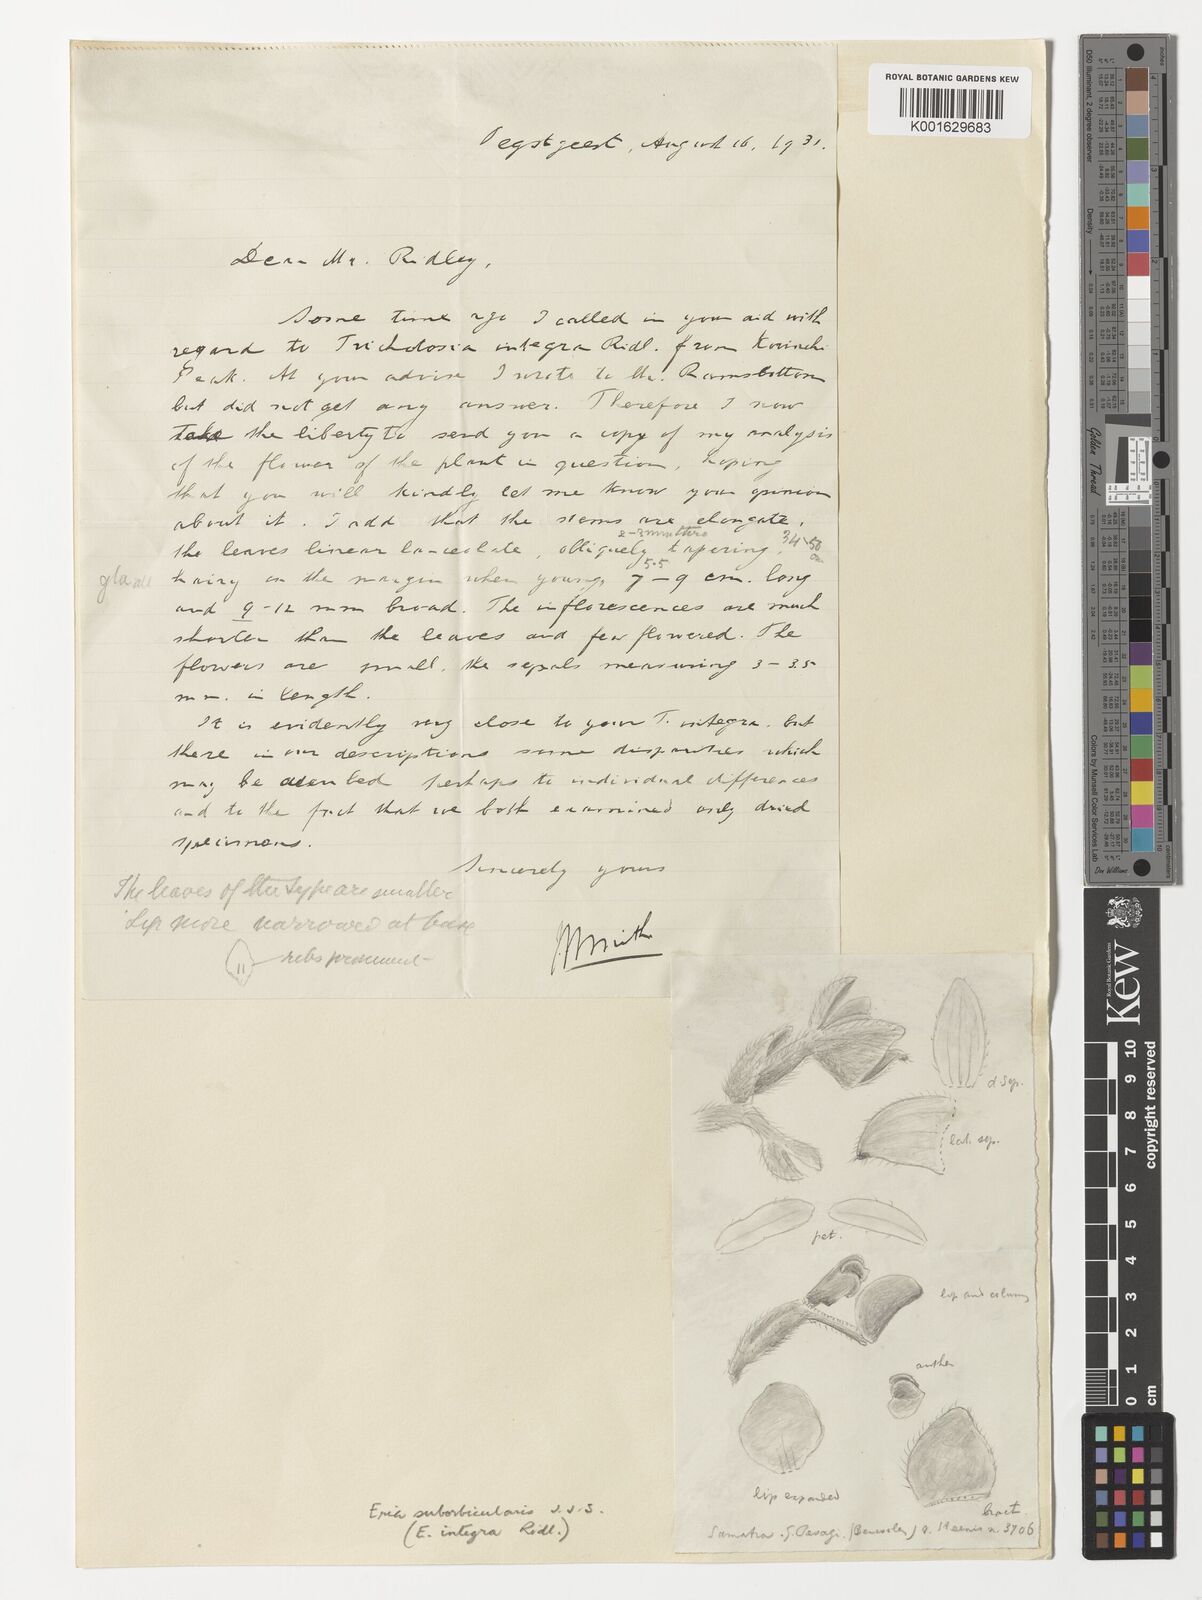 ROYAL BOTANIC GARDENS KEW
K001629683
Oegstgeest, August 16, 1931.
Dear Mr. Ridley,
Some time ago I called in your aid with
regard to Trichotosia integra Ridl. from Korinchi
Peak. At your advise I wrote to Mr. Ramsbottom
but did not get any answer. Therefore I now
take the liberty to send you a copy of my analysis
of the flower of the plant in question, hoping
that you will kindly let me know your opinion
about it. I add that the stems are elongate,
2-3 34-50
the leaves linear lanceolate, obliquely tapering,
5.5
hairy on the margin when young, 7-9 cm. long
and 9-12 mm broad. The inflorescences are much
shorter than the leaves and few flowered. The
flowers are small, the sepals measuring 3-3.5
mm. in length.
It is evidently very close to your T. integra, but
there in our descriptions some disparities which
may be perhaps to individual differences
and to the fact that we both examined only dried
specimens.
Sincerely yours
JJSmith
The leaves of the type are smaller
Lip more narrowed at base
ribs
d Sep.
lat. sep.
pet.
lip and column
anther
lip expanded
bract.
Sumatra. G. Pesagi. (Benculen) v. Steenis n. 3706
Eria suborbicularis J.J.S.
(E. integra Ridl.)
D50 Illuminant, 2 degree observer
Density
Golden Thread
Colors by Munsell Color Services Lab
Don Williams
inches
centimetres
Royal Botanic Gardens
Kew
0 1 2 3 4 5 6 7 8 9 10
cm
copyright reserved